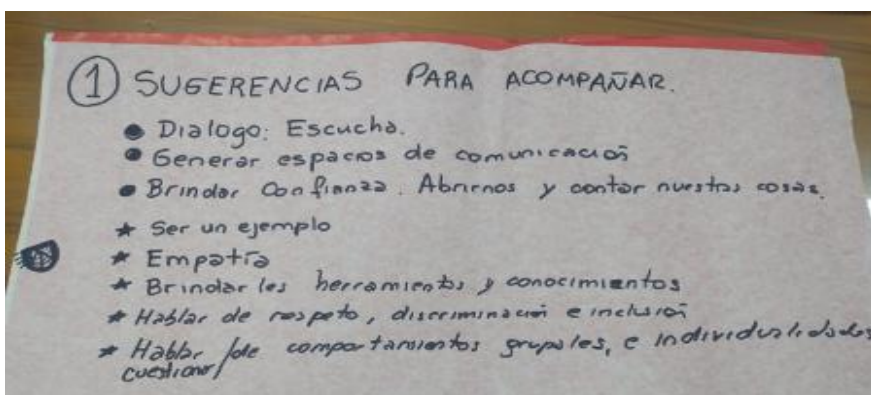 ① SUGERENCIAS PARA ACOMPAÑAR.
● Dialogo: Escucha.
● Generar espacios de comunicación
● Brindar Confianza. Abrirnos y contar nuestras cosas.
★ Ser un ejemplo
★ Empatía
★ Brindarles herramientas y conocimientos
★ Hablar de respeto, discriminación e inclusión
★ Hablar/de comportamientos grupales, e individualidades
cuestionar/